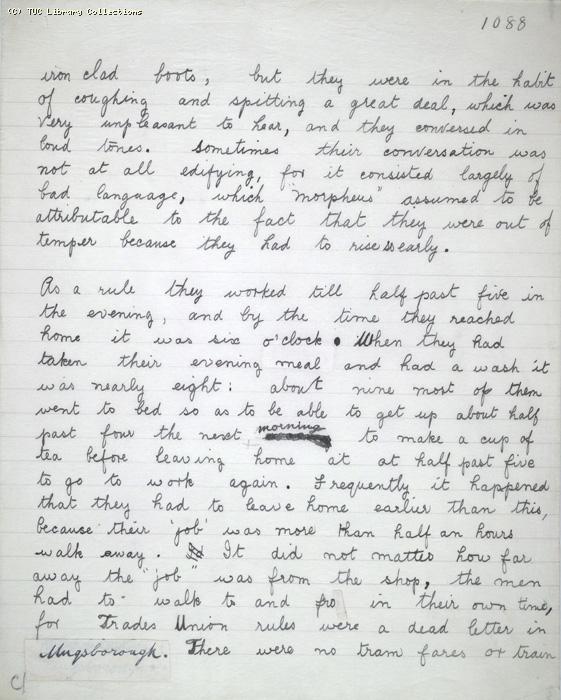 (C) TUC Library Collections
1088
iron clad boots, but they were in the habit
of coughing and spitting a great deal, which was
very unpleasant to hear, and they conversed in
loud tones. Sometimes their conversation was
not at all edifying, for it consisted largely of
bad language, which "morpheus" assumed to be
attributable to the fact that they were out of
temper because they had to rise so early.
As a rule they worked till half past five in
the evening, and by the time they reached
home it was six o'clock. When they had
taken their evening meal and had a wash it
was nearly eight: about nine most of them
went to bed so as to be able to get up about half
past four the next morning to make a cup of
tea before leaving home at at half past five
to go to work again. Frequently it happened
that they had to leave home earlier than this,
because their 'job' was more than half an hours
walk away. It did not matter how far
away the "job" was from the shop, the men
had to walk to and fro in their own time,
for Trades Union rules were a dead letter in
Mugsborough. There were no tram fares or train